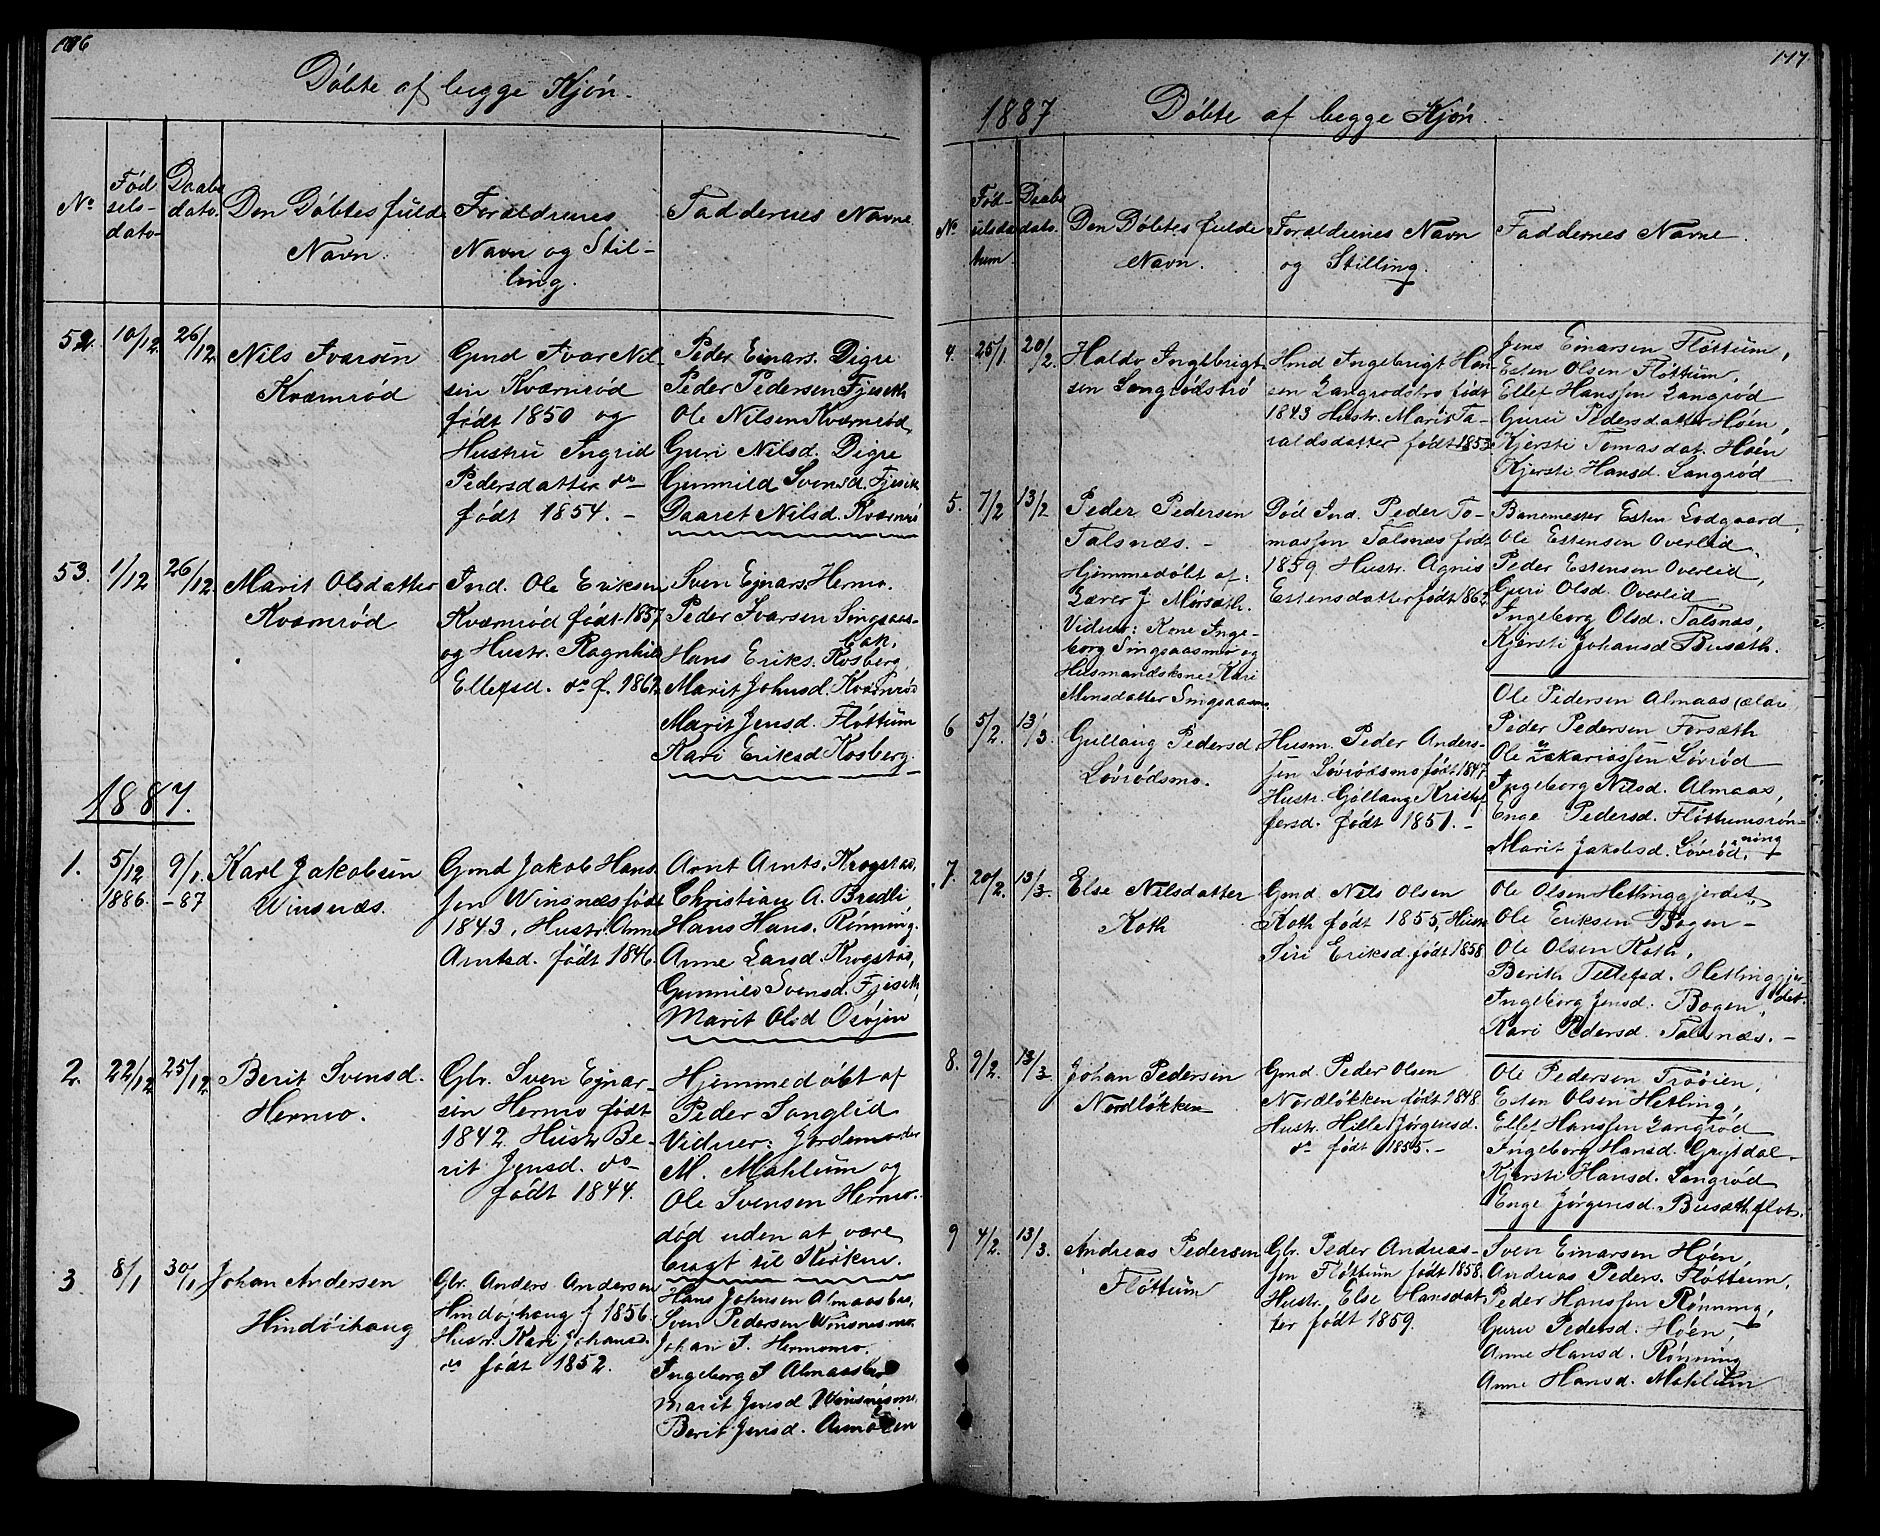 Døbte af begge Kjøn.
No
Fødselsdato
Daabsdato.
Den Døbtes fulde
Navn.
Forældrenes
Navn og Stil-
ling.
Faddernes Navne
52. 10/12. 26/12.
Nils Ivarsen
Kværnrød
Gmd Ivar Nil-
sen Kværnrød
født 1850 og
Hustru Ingrid
Pedersdatter do
født 1854. -
Peder Einars. Digre
Peder Pedersen Fjeseth
Ole Nilsen Kværnrød
Guri Nilsd. Digre
Gunnild Svensd. Fjeseth
Daaret Nilsd. Kværnrø
53. 1/12 26/12.
Marit Olsdatter
Kværnrød
Ind. Ole Eriksen
Kværnrød født 1857
og Hustr. Ragnhild
Ellefsd. do f. 1862
Sven Ejnars. Hermo.
Peder Ivarsen Singsaas-
bak.
Hans Eriks. Kosberg
Marit Johnsd. Kværnrød
Marit Jensd. Fløttum
Kari Eriksd Kosberg.
1887.
1. 5/12 1886. 9/1. -87
Karl Jakobsen
Winsnæs.
Gmd Jakob Hans
sen Winsnæs født
1843, Hustr. Anne
Arntsd. født 1846.
Arnt Arnts. Krogstad,
Christian A. Bredli
Hans Hans. Rønning.
Anne Larsd. Krogstad,
Gunnild Svensd. Fjeseth,
Marit Olsd Osøjen
2. 22/12 25/12
Berit Svensd.
Hermo.
Gbr. Sven Ejnar-
sen Hermo født
1842. Hustr Be-
rit Jensd. do
født 1844.
Hjemmedøbt af
Peder Langlid
Vidner: Jordemoder
M. Mahlum og
Ole Svensen Hermo.
død uden at være
bragt til Kirken.
3 8/1 30/1
Johan Andersen
Hindøihaug
Gbr. Anders Andersen
Hindøjhaug f 1856
Hustr. Kari Johansd.
do født 1852.
Hans Johnsen Almaasbak,
Sven Pedersen Winsnesmo,
Johan S. Hermomo.
Ingeborg I Almaasbak
Marit Jensd Winsnesmo,
Berit Jensd.
147
1887 Døbte af begge Kjøn.
No
Fødselsdatum
Daabsdato.
Den Døbtes fulde
Navn.
Forældrenes Navn
og Stilling.
Faddernes Navne.
4. 25/1 20/2.
Haldo Ingebrigt
sen Langrødstrø
Hmd Ingebrigt Han-
sen Langrødstrø født
1843 Hustr. Marit Ta-
raldsdatter født 1853
Jens Einarsen Fløttum,
Esten Olsen Fløttum,
Ellef Hanssen Langrød
Guru Pedersdatter Høen,
Kjersti Tomasdat. Høen
Kjersti Hansd. Langrød
5. 7/2 13/2
Peder Pedersen
Talsnæs. -
Hjemmedøbt af:
Lærer J Morsæth.
Vidner: Kone Inge-
borg Singsaasmo og
Husmandskone Kari
Monsdatter Singsaasmo
Død Ind. Peder To-
massen Talsnæs født
1859 Hustr. Agnis
Estensdatter født 1862
Banemester Esten Lodgaard,
Ole Estensen Overlid
Peder Estensen Overlid,
Guri Olsd. Overlid
Ingeborg Olsd. Talsnæs,
Kjersti Johansd Busæth.
6 5/2. 13/3.
Gullaug Pedersd
Løvrødsmo.
Husm. Peder Anders-
sen Løvrødsmo født 1847
Hustr. Gøllaug Kristof
fersd. født 1851. -
Ole Pedersen Almaas (ældre
Peder Pedersen Forsæth
Ole Zakariassen Løvrød
Ingeborg Nilsd. Almaas,
Enge Pedersd. Fløttumsrøn-
ning
Marit Jakobsd. Løvrød,
7. 20/2 13/3.
Else Nilsdatter
Koth
Gmd Nils Olsen
Koth født 1855, Hustr
Siri Eriksd. født 1858.
Ole Olsen Hetlinggjerdet,
Ole Eriksen Bogen -
Ole Olsen Koth,
Berith Tellefsd. Hetlinggjer-
det.
Ingeborg Jensd. Bogen,
Kari Pedersd. Talsnæs. -
8. 9/2. 13/3
Johan Pedersen
Nordløkken
Gmd. Peder Olsen
Nordløkken født 1848.
Hustr. Hille Jørgensd.
do født 1855. -
Ole Pedersen Troøien,
Esten Olsen Hetling,
Ellef Hanssen Langrød
Ingeborg Hansd. Grytdal -
Kjersti Hansd. Langrød
Enge Jørgensd. Busæthflot.
9 4/2. 13/3.
Andreas Pedersen
Fløttum
Gbr. Peder Andreas-
sen Fløttum født 1858.
Hustr. Else Hansdat
ter født 1859.
Sven Einarsen Høen,
Andreas Peders. Fløttum,
Peder Hanssen Rønning,
Guru Pedersd. Høen,
Anne Hansd. Rønning
Anne Hansd. Mahlum